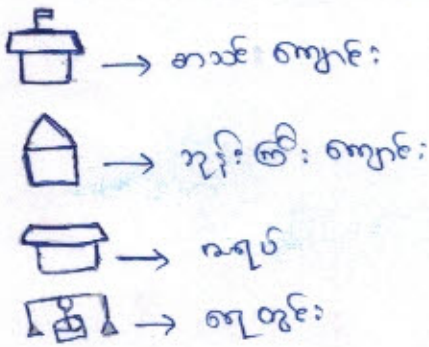 စာသင် ကျောင်း
ဘုန်းကြီး ကျောင်း
ဇရပ်
ရေတွင်း